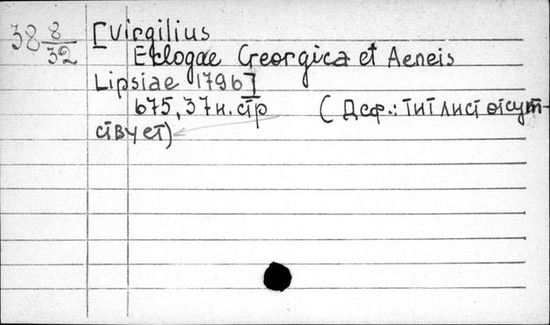 38 8/32 [Virgilius
Eclogae Georgica et Aeneis
Lipsiae 1796]
675, 37 н. стр (Деф.: тит лист отсут-
ствует)